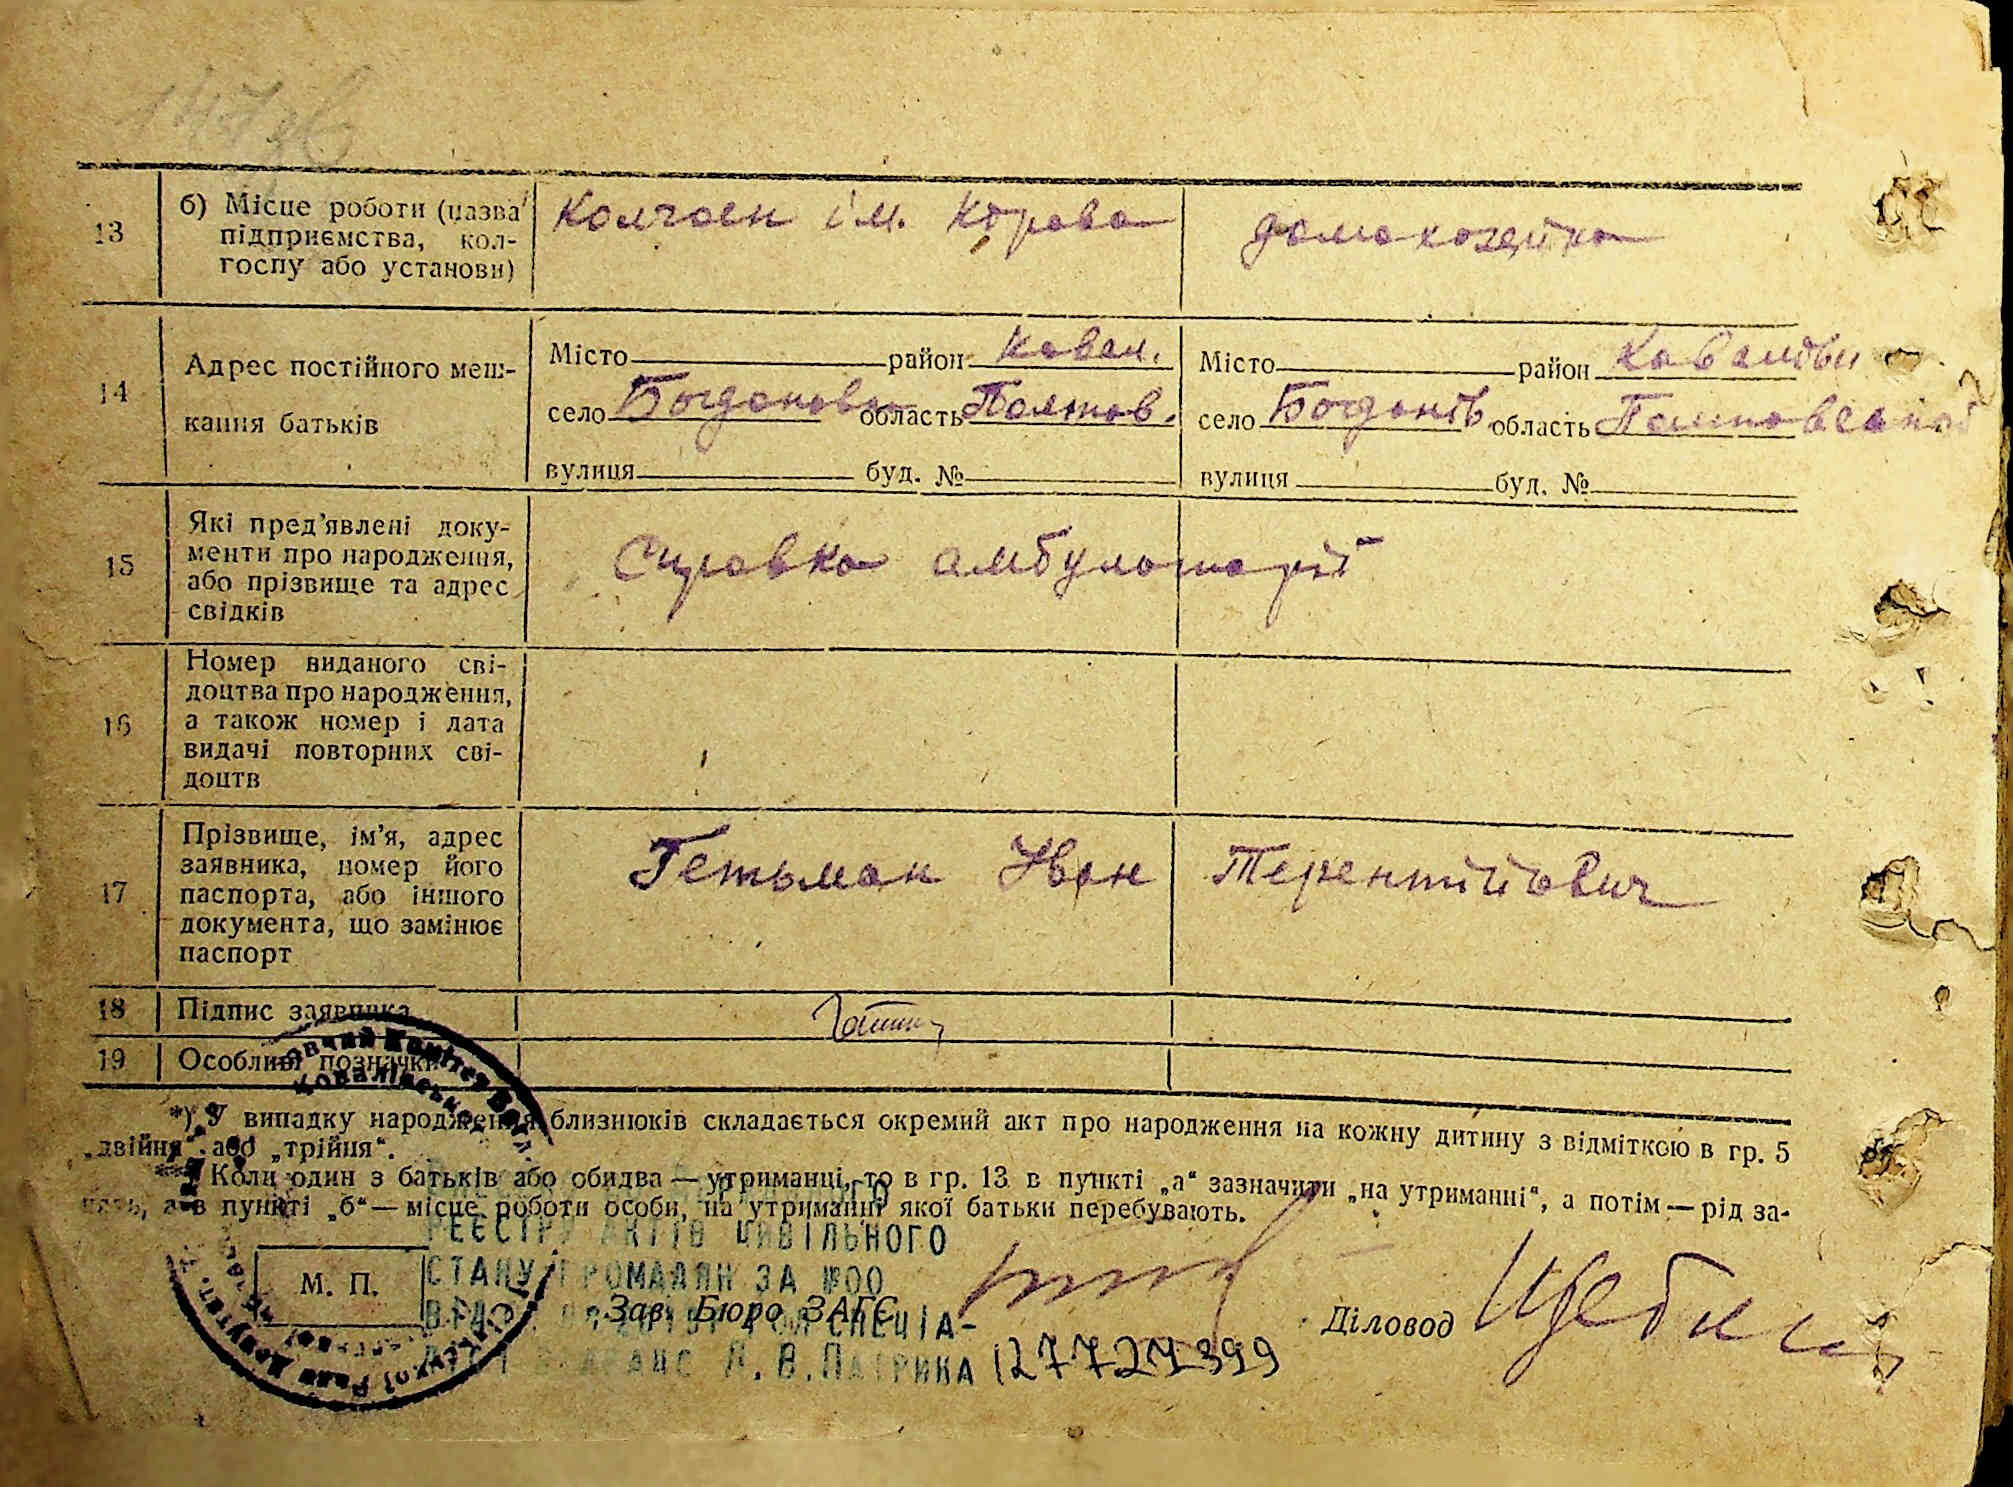 13
б) Місце роботи (назва
підприємства, кол-
госпу або установи)
Колгосп ім. Кірова
домохозяйка
14
Адрес постійного меш-
кання батьків
Місто район Ковал.
село Богдановка область Полтав.
вулиця буд. №
Місто район Ковалівськ
село Богданів. область Полтавської
вулиця буд. №
15
Які пред'явлені доку-
менти про народження,
або прізвище та адрес
свідків
Справка амбулаторії
16
Номер виданого сві-
доцтва про народження,
а також номер і дата
видачі повторних сві-
доцтв
17
Прізвище, ім'я, адрес
заявника, номер його
паспорта, або іншого
документа, що замінює
паспорт
Гетьман Іван Терентійович
18 Підпис заявника
19 Особливі позначки
*) У випадку народження близнюків складається окремий акт про народження на кожну дитину з відміткою в гр. 5
„двійня“ або „трійня“.
**) Коли один з батьків або обидва — утриманці, то в гр. 13 в пункті „а“ зазначити „на утриманні“, а потім — рід за-
нять, а в пункті „б“ — місце роботи особи, на утриманні якої батьки перебувають.
РЕЄСТРУ АКТІВ ЦИВІЛЬНОГО
СТАНУ ГРОМАДЯН ЗА №00
М. П.
Зав. Бюро ЗАГС
Діловод
СПЕЦІА-
Л. В. ПАТРИКА 12772У399